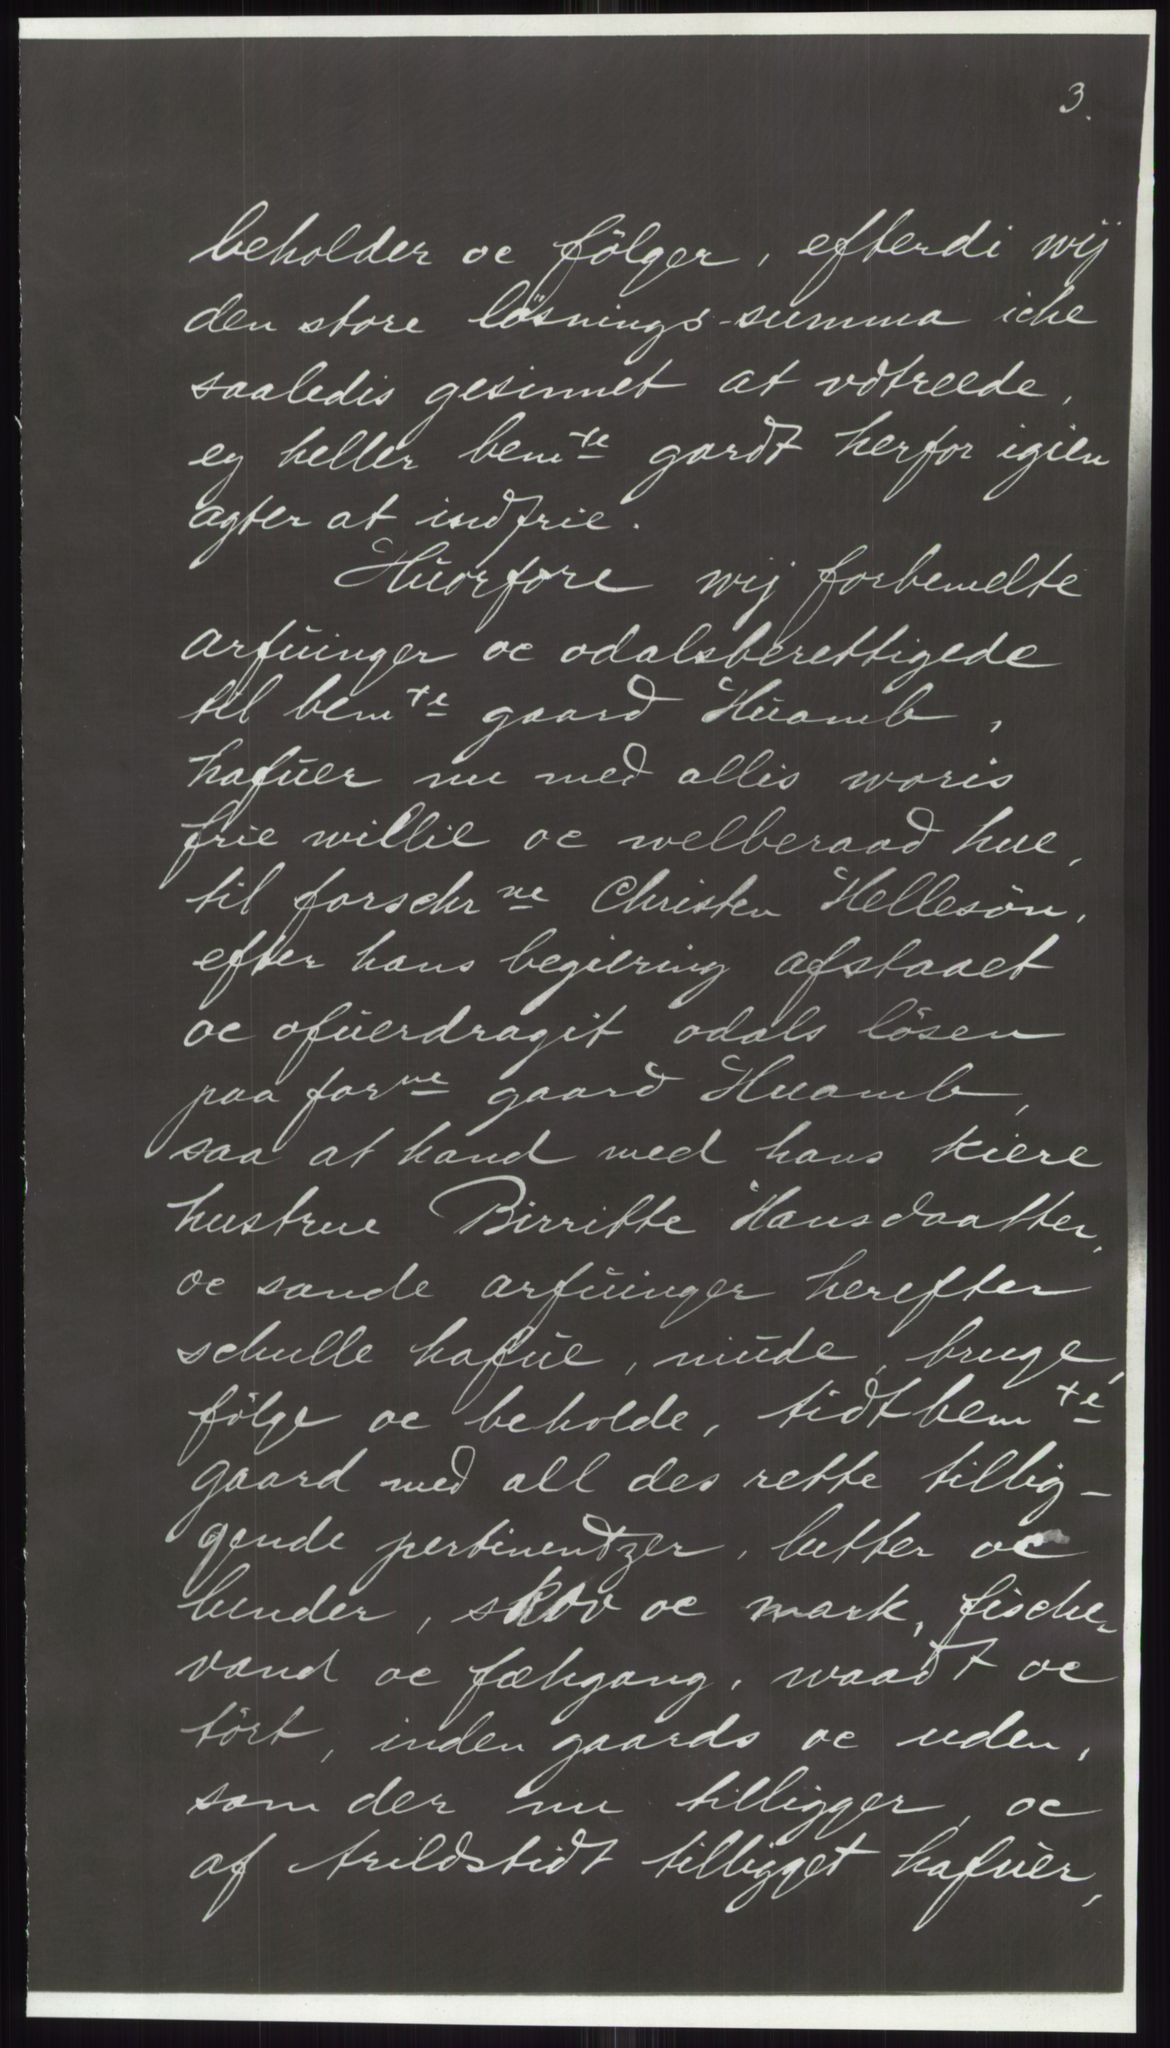 3.
beholder oc fölger, efterdi wij
den store lösnings-summa icke
saaledis gesinnet at vdtreede,
ey heller bem<sup>te</sup> gardt herfor igien
agter at indfrie.
Huorfore wij forbemelte
arfuinger oc odalsberettigede
til bem<sup>te</sup> gaard Huamb,
hafuer nu med allis woris
frie willie oc welberaad hue,
til forschr<sup>ne</sup> Christen Hellesön,
efter hans begiering afstaaet
oc ofuerdragit odals lösen
paa for<sup>ne</sup> gaard Huamb,
saa at hand med hans kiere
hustrue Birritte Hansdaatter,
oc sande arfuinger herefter
schulle hafue, niude, bruge,
fölge oc beholde, tidtbem<sup>te</sup>
gaard med all des rette tillig-
gende pertinentzer, lutter oc
lunder, skov oc mark, fische-
vand oc fæhgang, waadt oc
tört, inden gaards oc uden,
som der nu tilligger, oc
af Arildstidt tilligget hafuer,